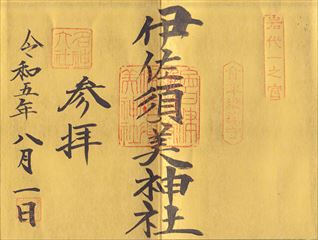 岩代一之宮
伊佐須美神社
参拝
名神大社
令和五年八月一日